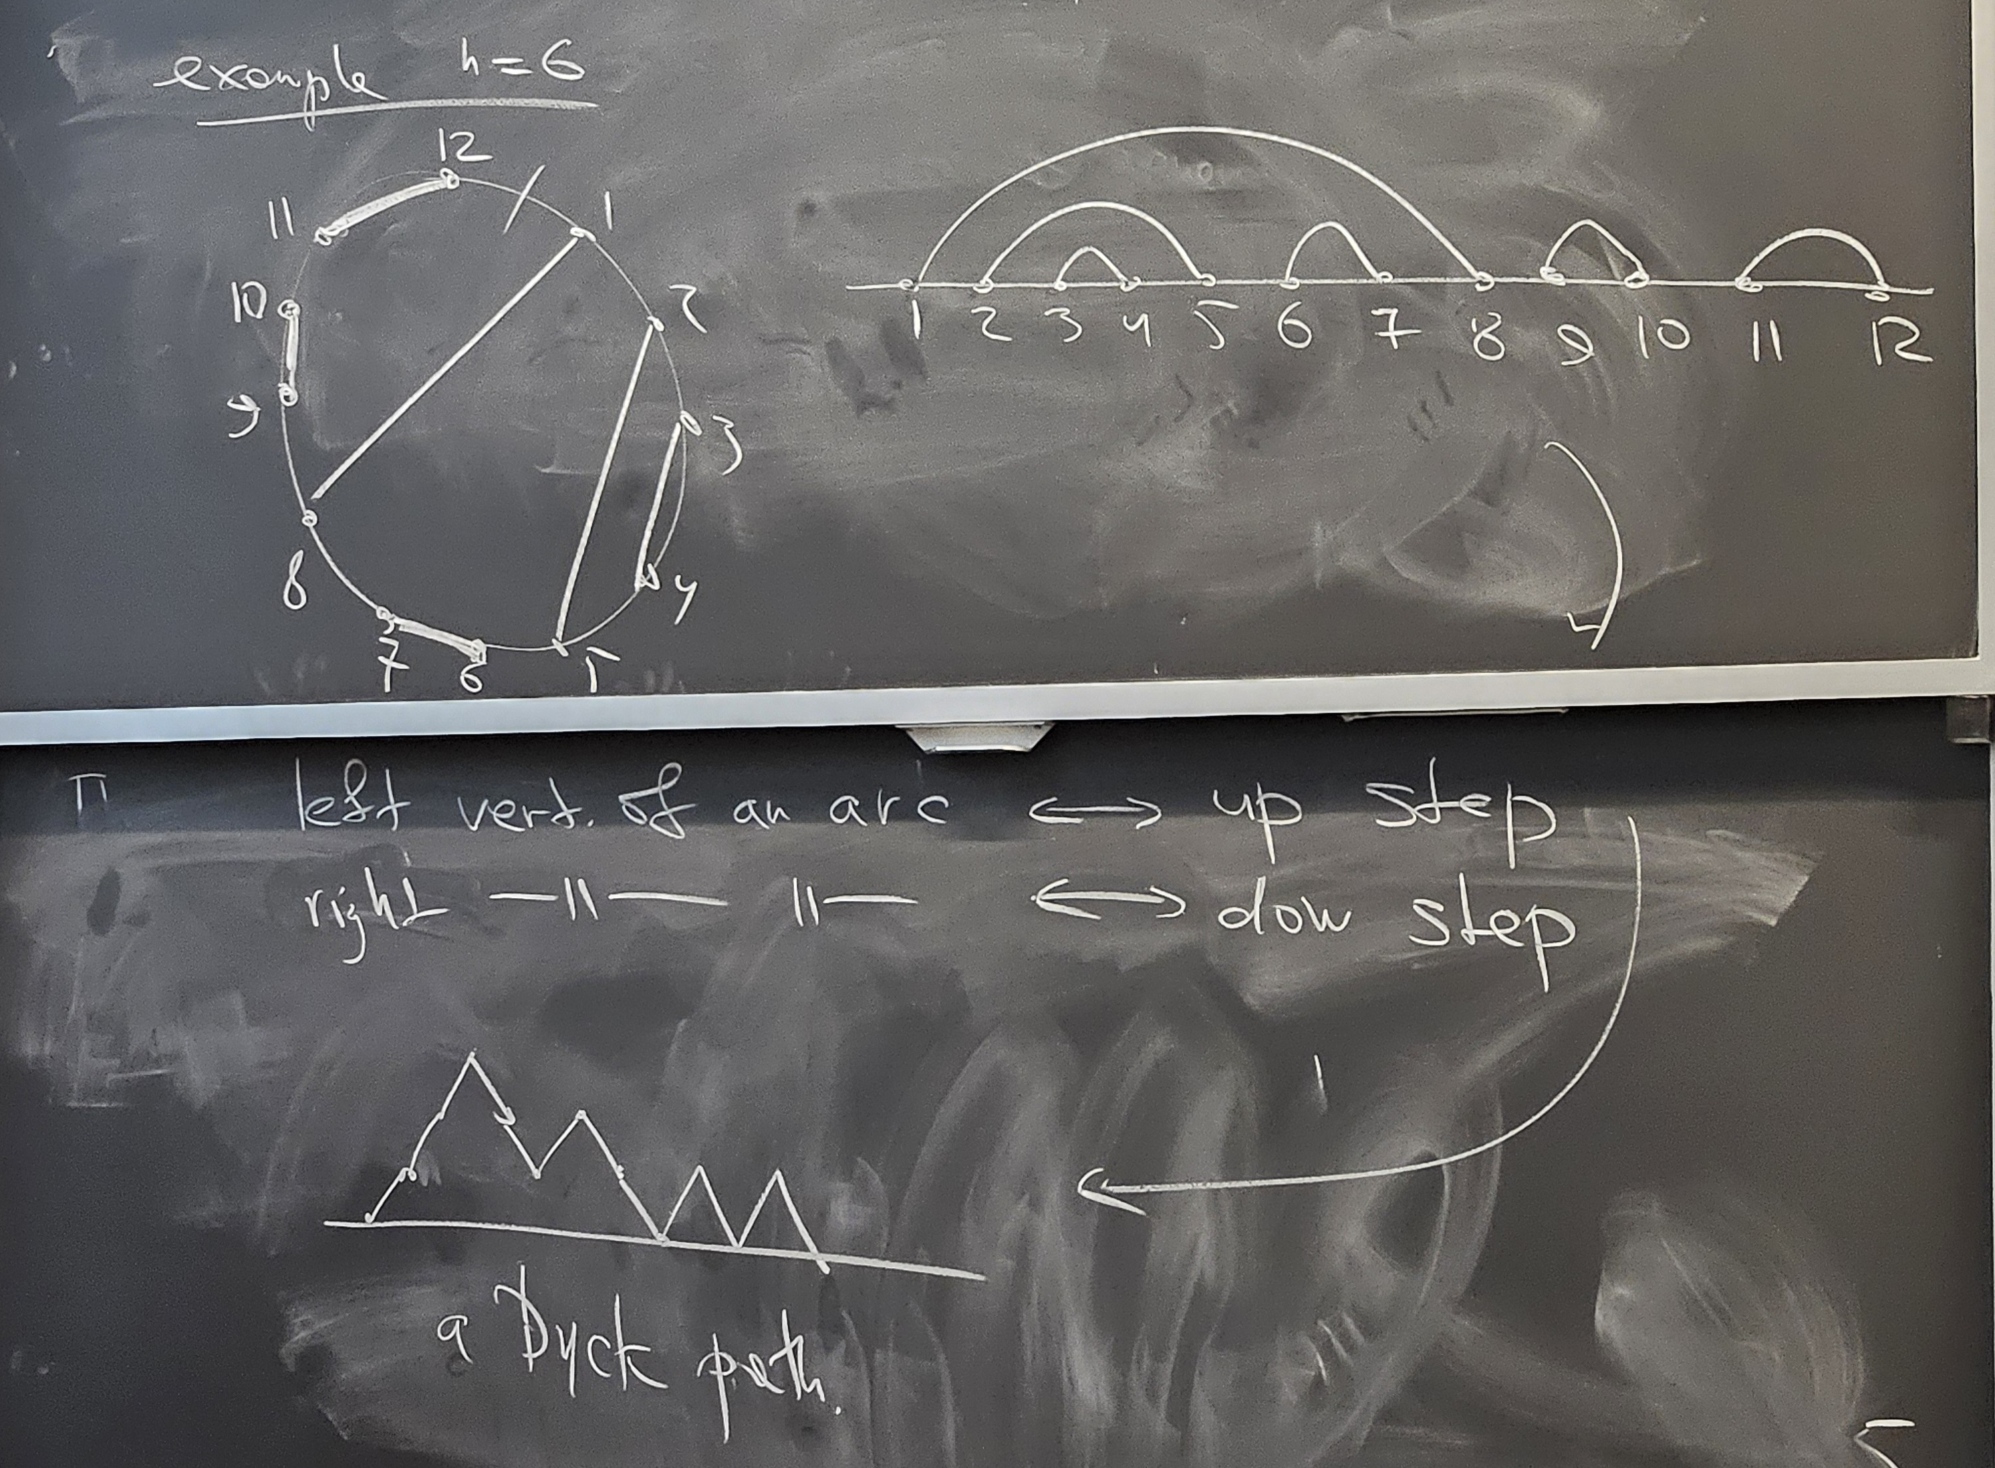 example n=6
12
11
1
10
2
9
3
8
4
7 6 5
1 2 3 4 5 6 7 8 9 10 11 12
left vert. of an arc ⟷ up step
right —||— ||— ⟷ dow step
a Dyck path.